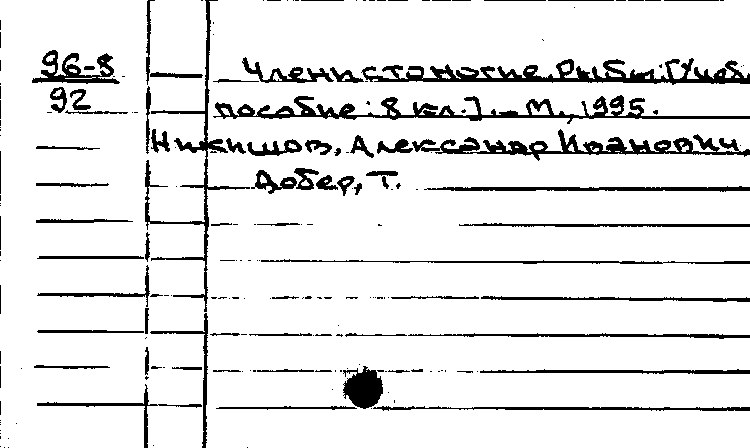 96-8 Членистоногие. Рыбы: [Учеб.
92 пособие: 8 кл.]. - М., 1995.
Никишов, Александр Иванович,
Добер, Т.